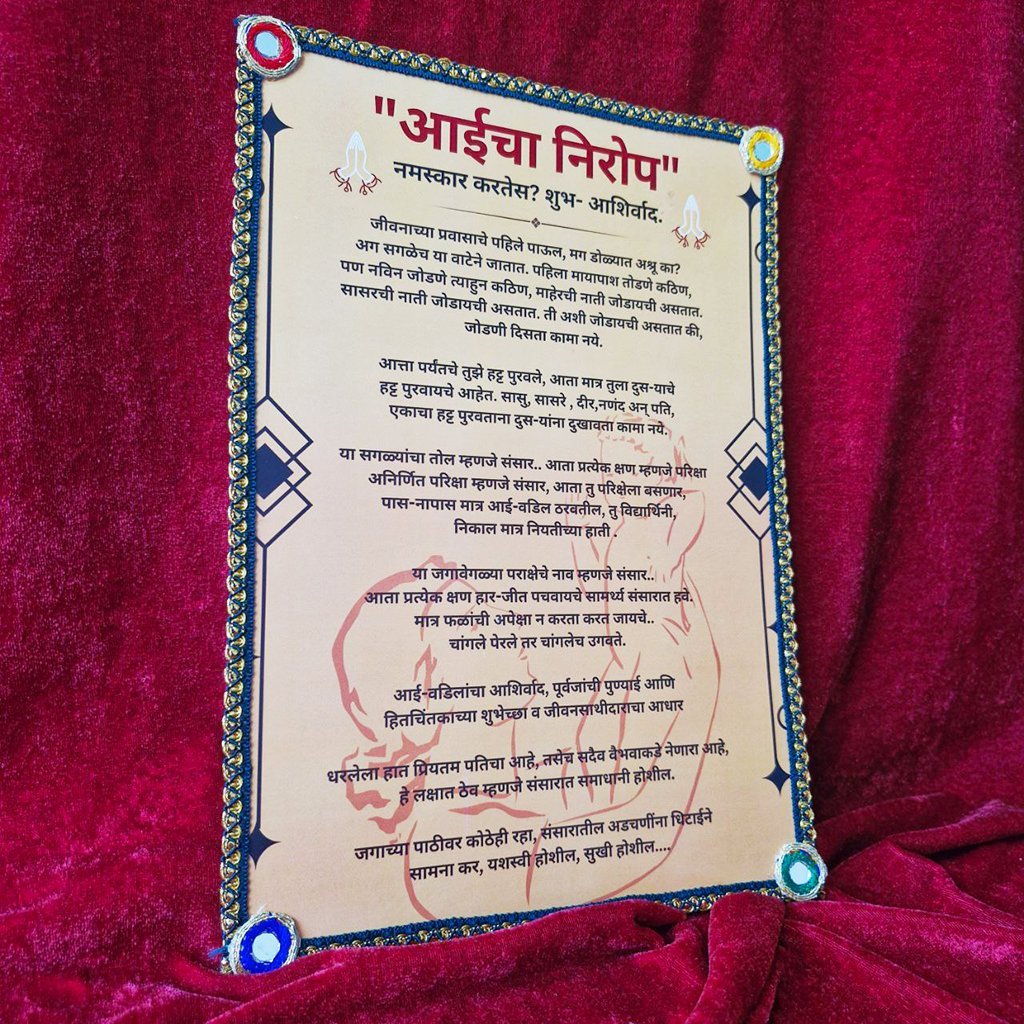 "आईचा निरोप"
नमस्कार करतेस? शुभ- आशिर्वाद.
जीवनाच्या प्रवासाचे पहिले पाऊल, मग डोळ्यात अश्रू का?
अग सगळेच या वाटेने जातात. पहिला मायापाश तोडणे कठिण,
पण नविन जोडणे त्याहुन कठिण, माहेरची नाती जोडायची असतात.
सासरची नाती जोडायची असतात. ती अशी जोडायची असतात की,
जोडणी दिसता कामा नये.
आत्ता पर्यंतचे तुझे हट्ट पुरवले, आता मात्र तुला दुस-याचे
हट्ट पुरवायचे आहेत. सासु, सासरे , दीर,नणंद अन् पति,
एकाचा हट्ट पुरवताना दुस-यांना दुखावता कामा नये.
या सगळ्यांचा तोल म्हणजे संसार.. आता प्रत्येक क्षण म्हणजे परिक्षा
अनिर्णित परिक्षा म्हणजे संसार, आता तु परिक्षेला बसणार,
पास-नापास मात्र आई-वडिल ठरवतील, तु विद्यार्थिनी,
निकाल मात्र नियतीच्या हाती .
या जगावेगळ्या पराक्षेचे नाव म्हणजे संसार..
आता प्रत्येक क्षण हार-जीत पचवायचे सामर्थ्य संसारात हवे.
मात्र फळांची अपेक्षा न करता करत जायचे..
चांगले पेरले तर चांगलेच उगवते.
आई-वडिलांचा आशिर्वाद, पूर्वजांची पुण्याई आणि
हितचिंतकाच्या शुभेच्छा व जीवनसाथीदाराचा आधार
धरलेला हात प्रियतम पतिचा आहे, तसेच सदैव वैभवाकडे नेणारा आहे,
हे लक्षात ठेव म्हणजे संसारात समाधानी होशील.
जगाच्या पाठीवर कोठेही रहा, संसारातील अडचणींना धिटाईने
सामना कर, यशस्वी होशील, सुखी होशील....